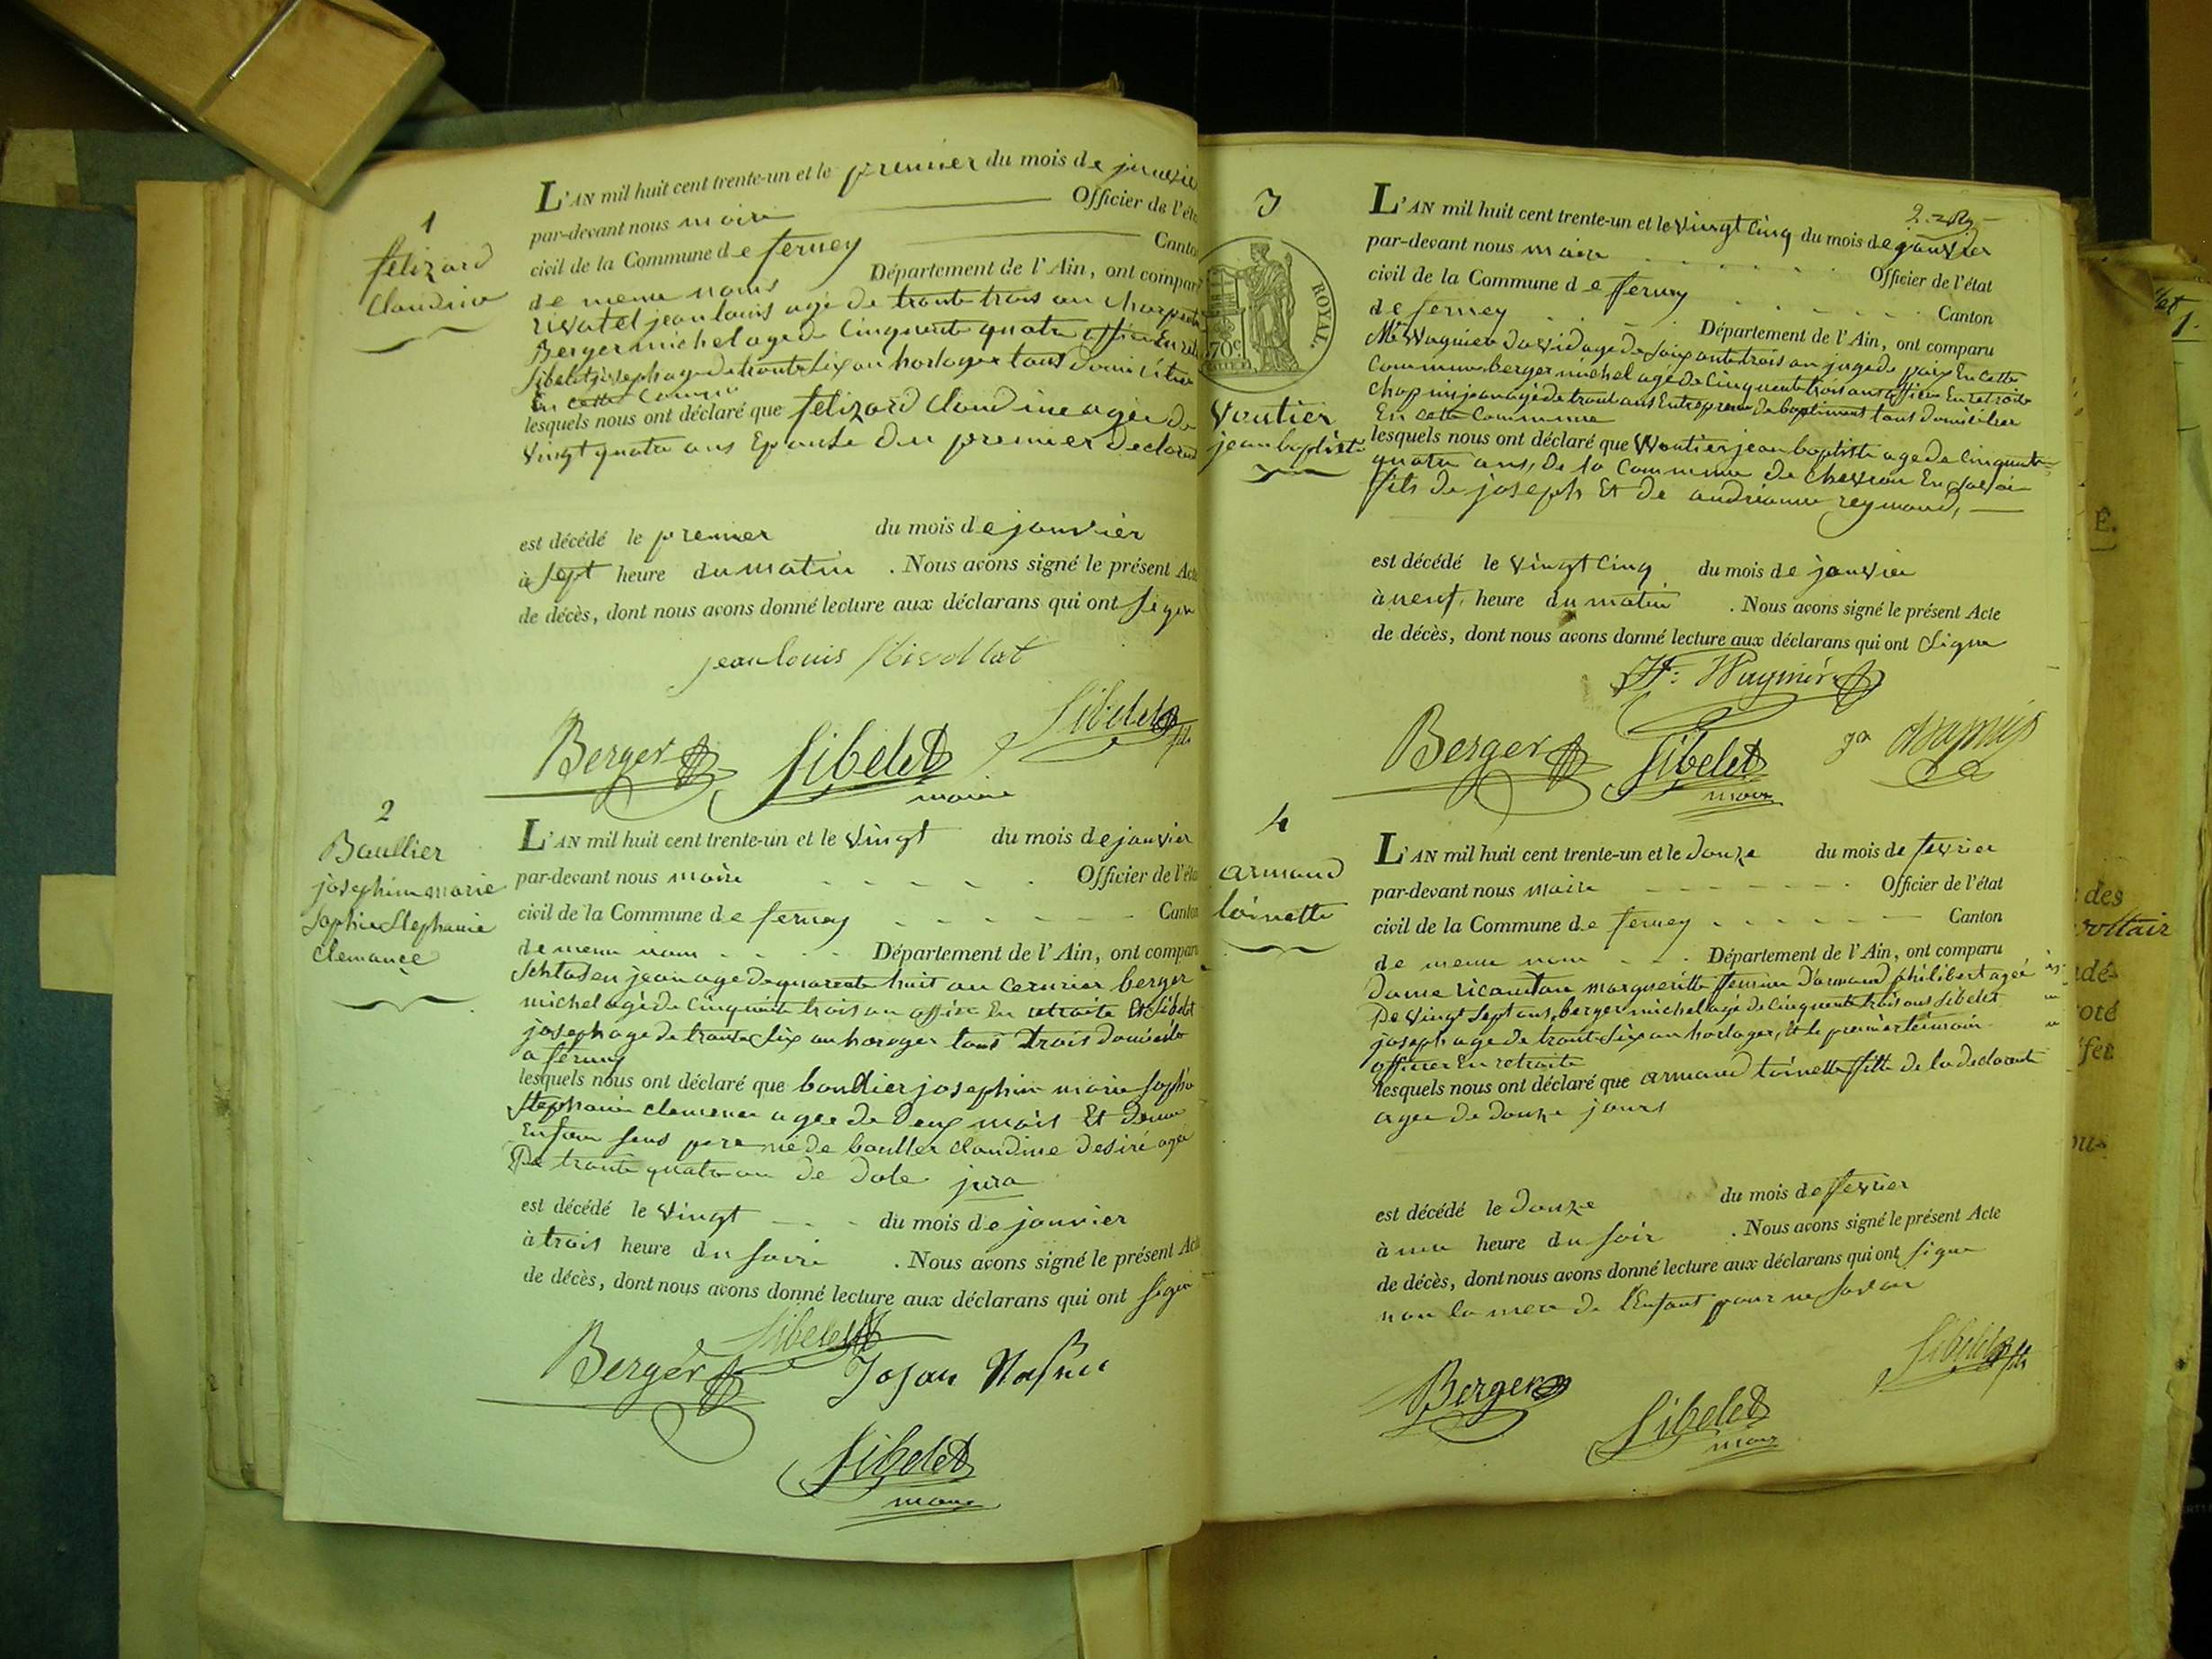 1
felizard
Claudine
L'AN mil huit cent trente-un et le premier du mois de janvie
par-devant nous maire Officier de l'éta
civil de la Commune de ferney Canto
de meme noms Département de l'Ain, ont compar
rivatel jean louis agé de trente trois an charpent
Berger michel agé de Cinquente quatre officie En ret
Sibelet joseph age de trente six an horloger tous Domicilie
En cette Commu
lesquels nous ont déclaré que felizard Claudine agée de
Vingt quatre ans Epouse du premier declarant
est décédé le premier du mois de janvier
à sept heure du matin . Nous avons signé le présent Acte
de décès, dont nous avons donné lecture aux déclarans qui ont signe
jean louis Rivollat
Berger Sibelet Sibelet fils
maire
2
Baullier
josephine marie
Sophie Stephanie
Clemance
L'AN mil huit cent trente-un et le Vingt du mois de janvier
par-devant nous maire Officier de l'éta
civil de la Commune de ferney Canton
de meme nom Département de l'Ain, ont compar
jean age de quarente huit an cerurier berger
michel agé de Cinquente trois an officie En retraite Et Sibelet
joseph age de trente Six an horoger tous trois Domicilie
a ferney
lesquels nous ont déclaré que boullier josephine marie Sophie
Stephanie clemence agee de Deux mois Et Demie
Enfan sans pere né de boullier Claudine Desiré agée
De trante quatre an de Dole jura
est décédé le Vingt du mois de janvier
à trois heure du soire . Nous avons signé le présent Acte
de décès, dont nous avons donné lecture aux déclarans qui ont signé
Sibelet
Berger
Sibelet
maire
3
ROYAL.
70c
Voutier
jean baptiste
L'AN mil huit cent trente-un et le Vingt Cinq du mois de janvier
par-devant nous maire Officier de l'état
civil de la Commune de ferney Canton
de ferney Département de l'Ain, ont comparu
Mr Wagnier David age de Soixante trois an juge de paix En Cette
Commune, berger michel agé de Cinquente trois ans officier En retraite
Chapuis jean agé de trent ans Entrepreneur de batiment tous Domicilier
En cette Commune
lesquels nous ont déclaré que Voutier jean baptiste age de Cinquente
quatre ans, De la Commune de Chevron En Savoi
fils de joseph Et de andrianne reymond,
est décédé le Vingt Cinq du mois de janvier
à neuf heure du matin . Nous avons signé le présent Acte
de décès, dont nous avons donné lecture aux déclarans qui ont Signe
Wagnier
Berger Sibelet
maire
4
armand
toinette
L'AN mil huit cent trente-un et le Douze du mois de fevrier
par-devant nous maire Officier de l'état
civil de la Commune de ferney Canton
de meme nom Département de l'Ain, ont comparu
Dame margueritte femme D'armand philibert agée
De Vingt Sept ans, berger michel agé de Cinquente trois ans Sibelet
joseph age de trent Six an horloger, Et le premier temoin
officier En retraite
lesquels nous ont déclaré que armand toinette fille de la declarente
agee de Douze jours
est décédé le Douze du mois de fevrier
à une heure du soir . Nous avons signé le présent Acte
de décès, dont nous avons donné lecture aux déclarans qui ont signe
non la mere de l'Enfant pour ne savoir
Sibelet fils
Berger Sibelet
maire